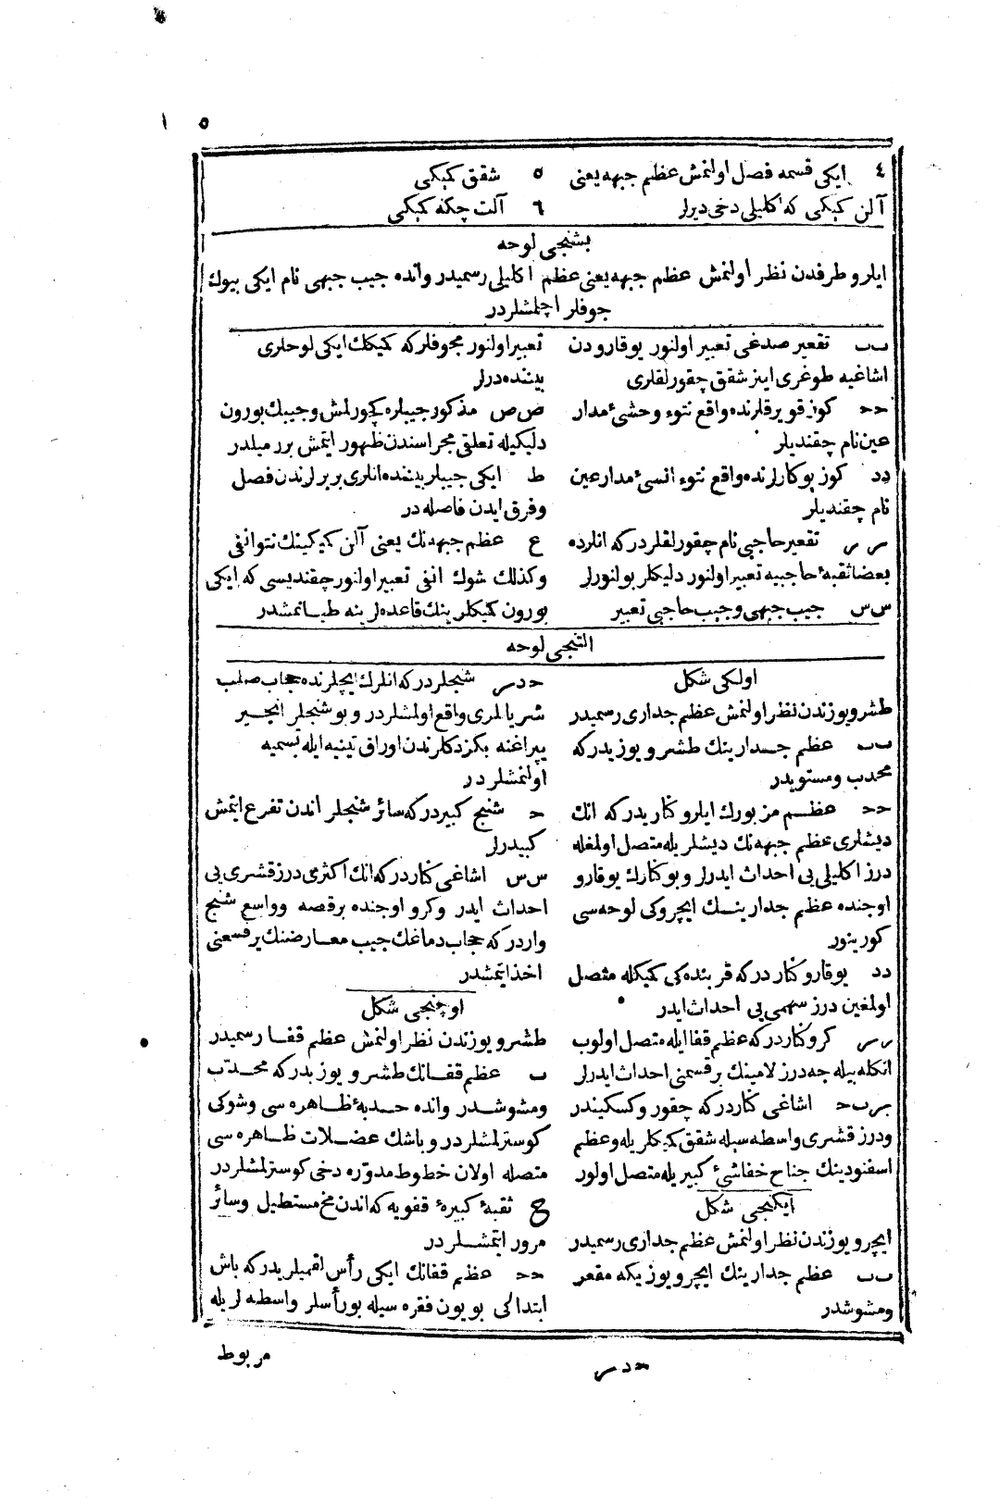 ٥ ١
٤ ايكى قسمه فصل اولنمش عظم جبهه يعنى
آلن كميكى كه اكليلى دخى ديرلر
٥ شقق كميكى
٦ آلت چكنه كميكى
بشنجى لوحه
ايلرو طرفدن نظر اولنمش عظم جبهه يعنى عظم اكليلى رسميدر وانده جيب جبهى نام ايكى بيوك
جوفلر اچلمشلردر
ب ب تقعير صدغى تعبير اولنور يوقارودن
اشاغيه طوغرى اينر شقق چقورلقلرى
ح ح كوز قويرقلرنده واقع نتوء وحشئ مدار
عين نام چقنديلر
د د كوز بوكارلرنده واقع نتوء انسئ مدار عين
نام چقنديلر
ر ر تقعير حاجبى نام چقورلقلردركه انلرده
بعضا ثقبهٔ حاجبيه تعبير اولنور دليكلر بولنورلر
س س جيب جبهى وجيب حاجبى تعبير
تعبير اولنور مجوفلركه كميكك ايكى لوحلرى
بيننده درلر
ص ص مذكور جيبلره كچورلمش وجيبك بورون
دليكيله تعلقى مجراسندن ظهور ايتمش برر ميلدر
ط ايكى جيبلر بيننده انلرى بربرلرندن فصل
وفرق ايدن فاصله در
ع عظم جبهه نك يعنى آلن كميكينك نتو انفى
وكذلك شوك انفى تعبير اولنور چقنديسى كه ايكى
بورون كميكلرينك قاعده لرينه طيانمشدر
التنجى لوحه
اولكى شكل
طشرو يوزندن نظر اولنمش عظم جدارى رسميدر
ب ب عظم جدارينك طشرو يوزيدركه
محدب ومستويدر
ح ح عظم مزبورك ايلرو كناريدركه انك
ديشلرى عظم جبهه نك ديشلريله متصل اولمغله
درز اكليلى يى احداث ايدرلر وبوكنارك يوقارو
اوجنده عظم جدارينك ايچروكى لوحه سى
كورينور
د د يوقارو كناردركه قربنده كى كميكله متصل
اولمغين درز سهمى يى احداث ايدر
ر ر كرو كناردركه عظم قفا ايله متصل اولوب
انكله بيله جه درز لامينك برقسمنى احداث ايدرلر
ب ح اشاغى كناردركه چقور وكسكيندر
ودرز قشرى واسطه سيله شقق كميكلريله وعظم
اسفنودينك جناح خفاشئ كبيريله متصل اولور
ايكنجى شكل
ايچرو يوزندن نظر اولنمش عظم جدارى رسميدر
ب ب عظم جدارينك ايچرو يوزيكه مقعر
ومشوشدر
ح د ر شنجلردركه انلرك ايچلرنده حجاب صلب
شريانلرى واقع اولمشلردر وبو شنجلر انجير
يپراغنه بكزدكلرندن اوراق تينيه ايله تسميه
اولنمشلردر
ح شنج كبيردركه سائر شنجلر اندن تفرع ايتمش
كبيدرلر
س س اشاغى كناردركه انك اكثرى درز قشرى يى
احداث ايدر وكرو اوجنده برقصه وواسع شنج
واردركه حجاب دماغك جيب معارضنك برقسمنى
اخذ ايتمشدر
اوچنجى شكل
طشرو يوزندن نظر اولنمش عظم قفا رسميدر
ب عظم قفانك طشرو يوزيدركه محدب
ومشوشدر وانده حدبهٔ ظاهره سى وشوكى
كوسترلمشلردر وباشك عضلات ظاهره سى
متصله اولان خطوط مدوّره دخى كوسترلمشلردر
ح ثقبهٔ كبيرهٔ قفويه كه اندن مخ مستطيل وسائر
مرور ايتمشلردر
ح ح عظم قفانك ايكى رأس لقميلريدركه باش
ابتداكى بويون فقره سيله بو رأسلر واسطه لريله
ح د ر
مربوط